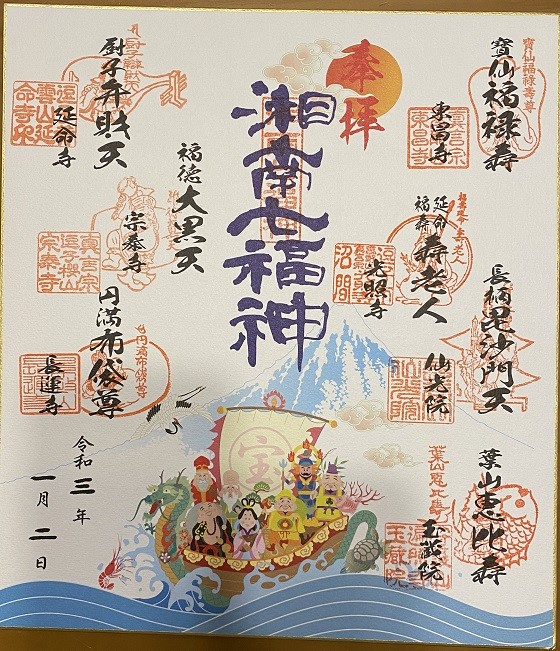 奉拝
湘南七福神
寳仙福禄寿
東昌寺
延命
福寿
寿老人
光照寺
沼間
長柄毘沙門天
仙光院
葉山恵比寿
玉蔵院
厨子弁財天
延命寺
福徳大黒天
宗泰寺
円満布袋尊
長運寺
宝
令和三年
一月二日